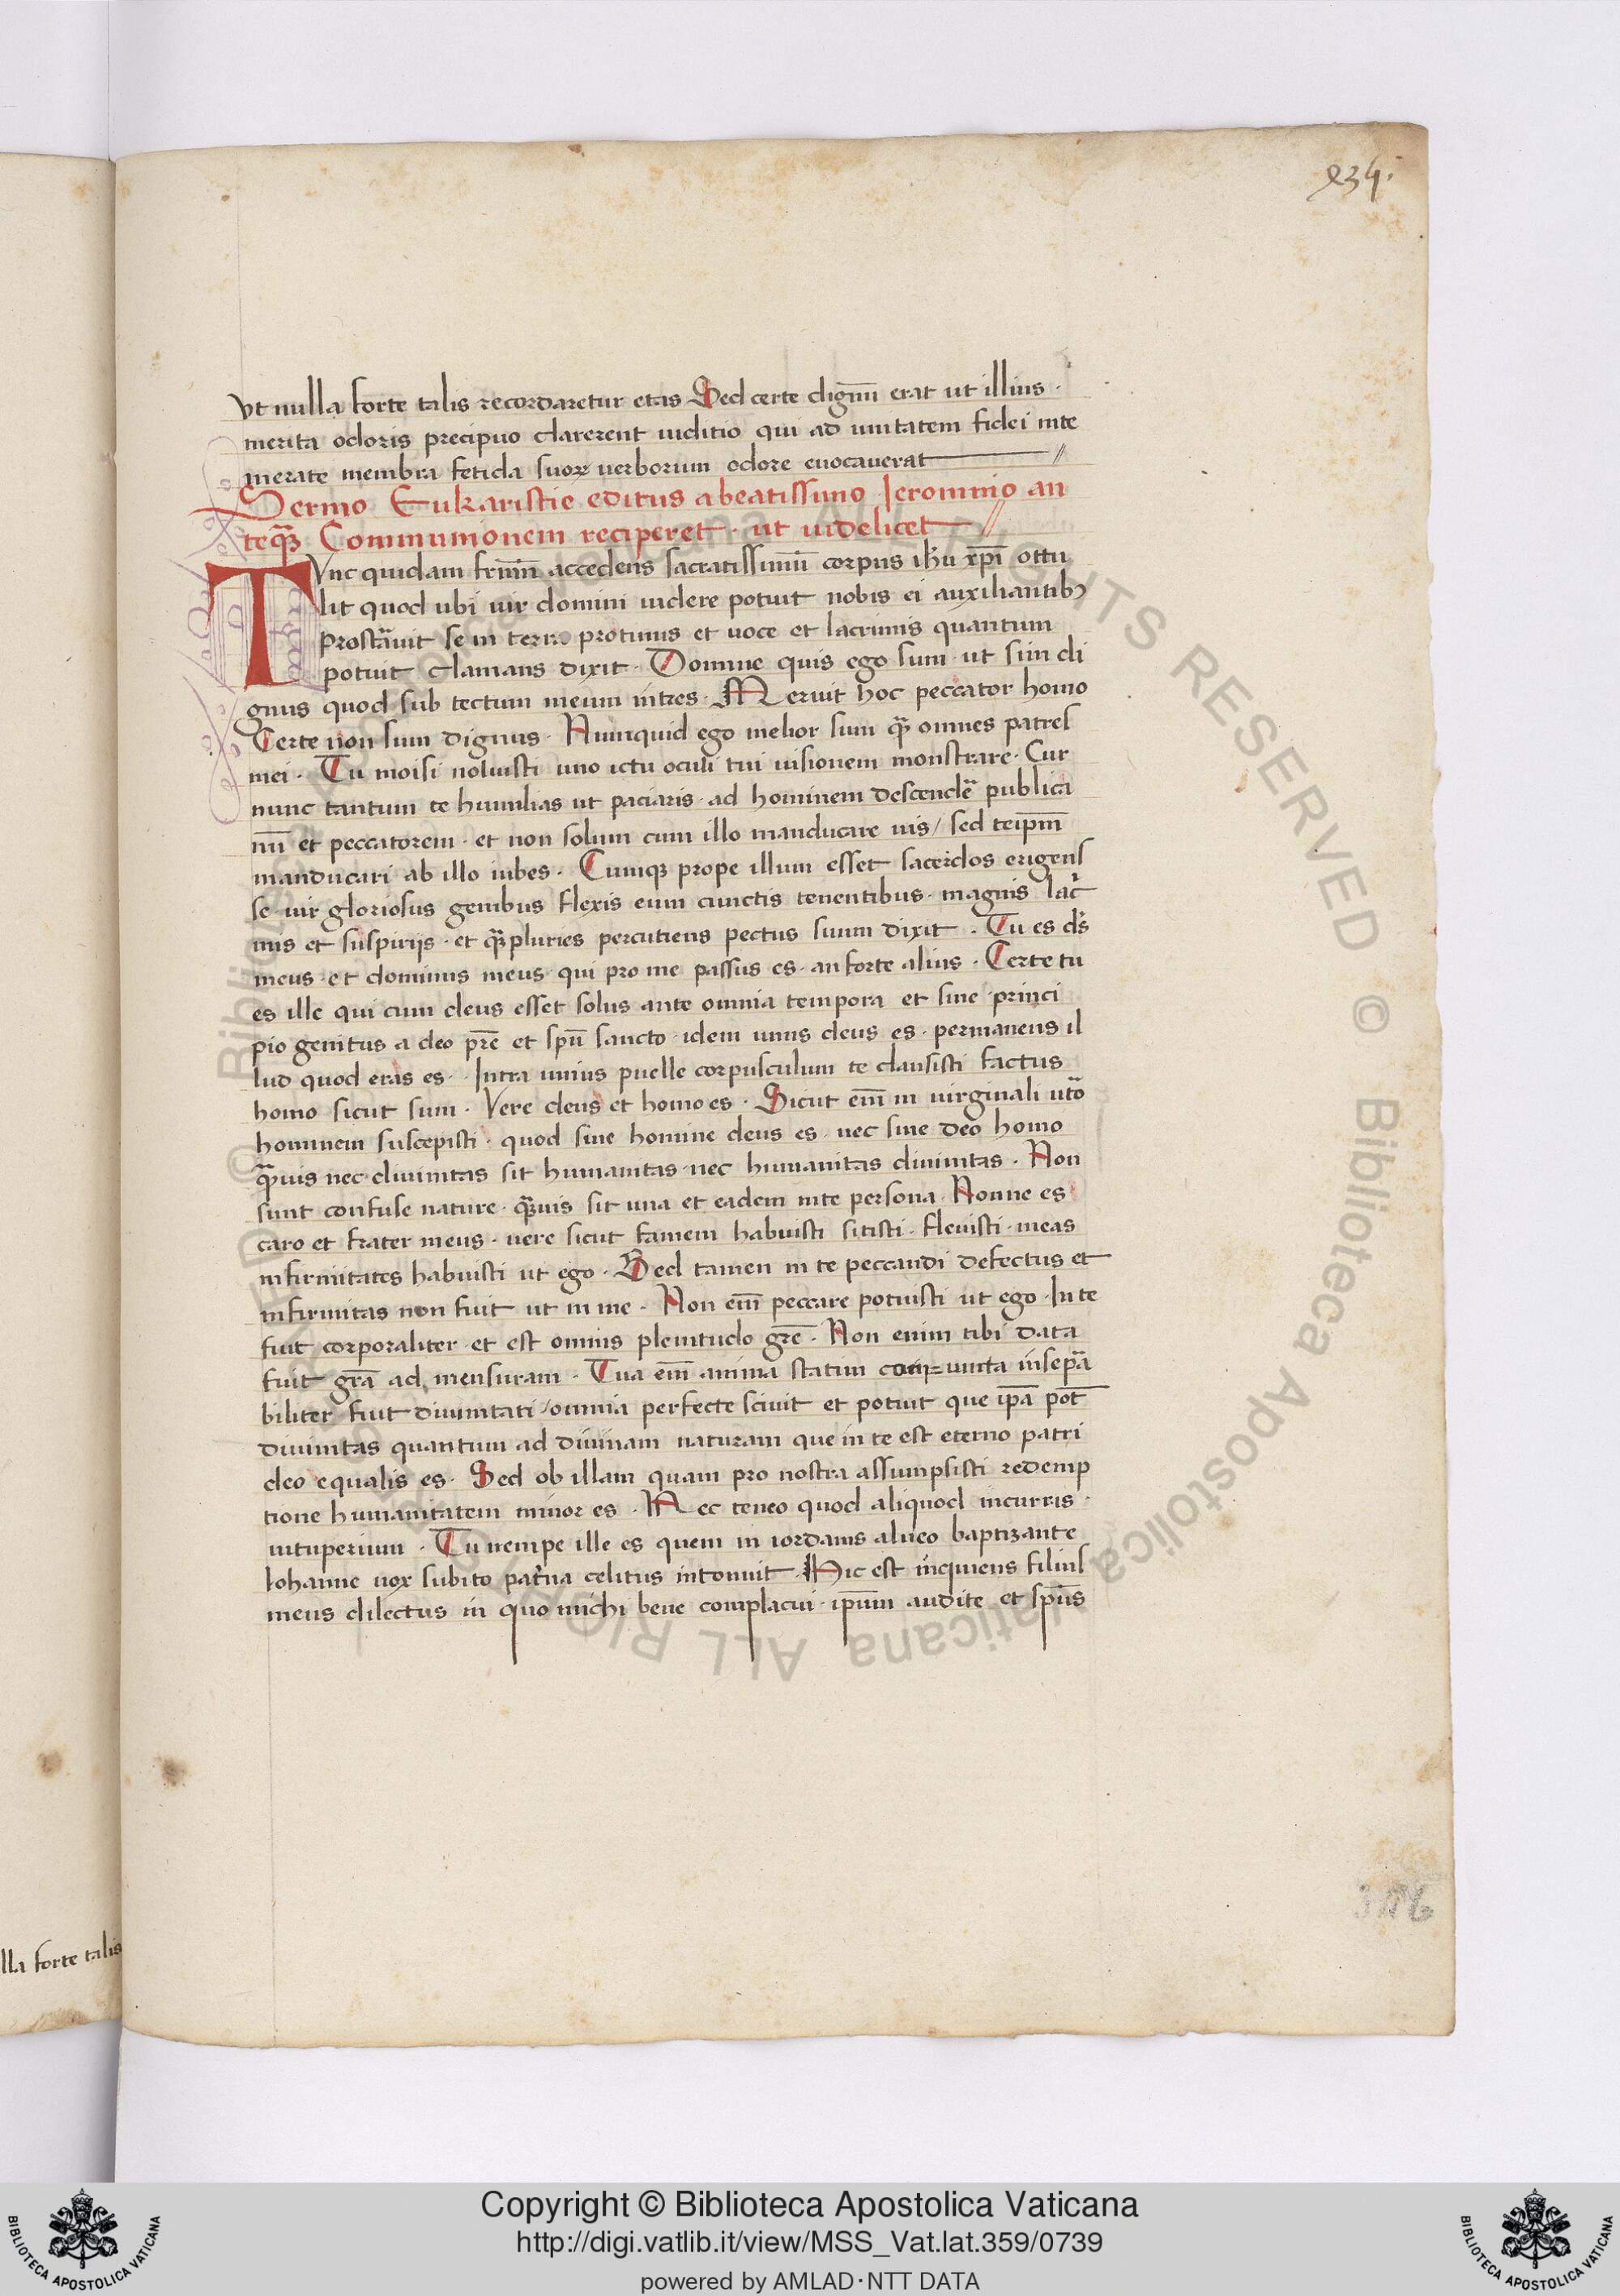 234.
vt nulla forte talis recordaretur etas Sed certe dignũ erat ut illius ·
merita odoris precipuo clarerent iuditio qui ad unitatem fidei inte
merate membra fetida suoꝝ verborum odore euocauerat //
Sermo Eukaristie editus a beatissimo Ieronimo an
teqꝫ Communionem reciperet · ut videlicet //
TVnc quidam frũm accedens sacratissimũ corpus ihũ xp̃i ottu
lit quod ubi uir domini uidere potuit nobis ei auxiliantibꝫ
prostãuit se in terra protinus et uoce et lacrimis quantum
potuit clamans dixit · Domine quis ego sum ut sim di
gnus quod sub tectum meum intres · Meruit hoc peccator homo
Certe non sum dignus · Numquid ego melior sum qꝫ omnes patres
mei · Tu moisi noluisti uno ictu oculi tui uisionem monstrare · Cur
nunc tantum te humilias ut paciaris · ad hominem descendẽ publica
nũ et peccatorem · et non solum cum illo manducare uis / sed teipm̃
manducari ab illo iubes · Cumqꝫ prope illum esset sacerdos erigens
se uir gloriosus genibus flexis eum cunctis tenentibus · magnis lac̃
mis et suspirijs · et qꝫpluries percutiens pectus suum dixit · Tu es ds̃
meus · et dominus meus qui pro me passus es · an forte alius · Certe tu
es ille qui cum deus esset solus ante omnia tempora et sine princi
pio genitus a deo pr̃e et spũ sancto · idem unus deus es · permanens il
lud quod eras es · Intra unius puelle corpusculum te clausisti factus
homo sicut sum · Vere deus et homo es · Sicut em̃ in uirginali utõ
hominem suscepisti · quod sine homine deus es · nec sine deo homo
qꝫuis nec diuinitas sit humanitas · nec humanitas diuinitas · Non
sunt confuse nature · qꝫuis sit una et eadem in te persona · Nonne es
caro et frater meus · uere sicut famem habuisti sitisti · fleuisti · meas
infirmitates habuisti ut ego · Sed tamen in te peccandi defectus et
infirmitas non fuit ut in me · Non em̃ peccare potuisti ut ego · In te
fuit corporaliter · et est omnis plenitudo gr̃e · Non enim tibi data
fuit gr̃a ad mensuram · Tua em̃ anima statim con=unita insep̃a
biliter fuit diuinitati / omnia perfecte sciuit et potuit que ip̃a pot̃
diuinitas quantum ad diuinam naturam que in te est eterno patri
deo equalis es · Sed ob illam quam pro nostra assumpsisti redemp
tione humanitatem minor es · Nec teneo quod aliquod incurris ·
uituperium · Tu nempe ille es quem in iordanis alueo baptizante
Iohanne uox subito pat̃na celitus intonuit · Hic est inquiens filius
meus dilectus in quo michi bene complacui · ipũm audite et spũs
lla forte talis
© Biblioteca Apostolica Vaticana ALL RIGHTS RESERVED
Copyright © Biblioteca Apostolica Vaticana
http://digi.vatlib.it/view/MSS_Vat.lat.359/0739
powered by AMLAD·NTT DATA
BIBLIOTECA APOSTOLICA VATICANA
BIBLIOTECA APOSTOLICA VATICANA